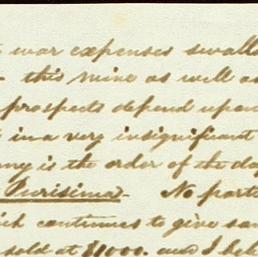 war expenses swallo
this mine as well as
prospects depend upon
in a very insignificant
is the order of the day
Purisima. No parts
continues to give sa
sold at $1000. and I bel